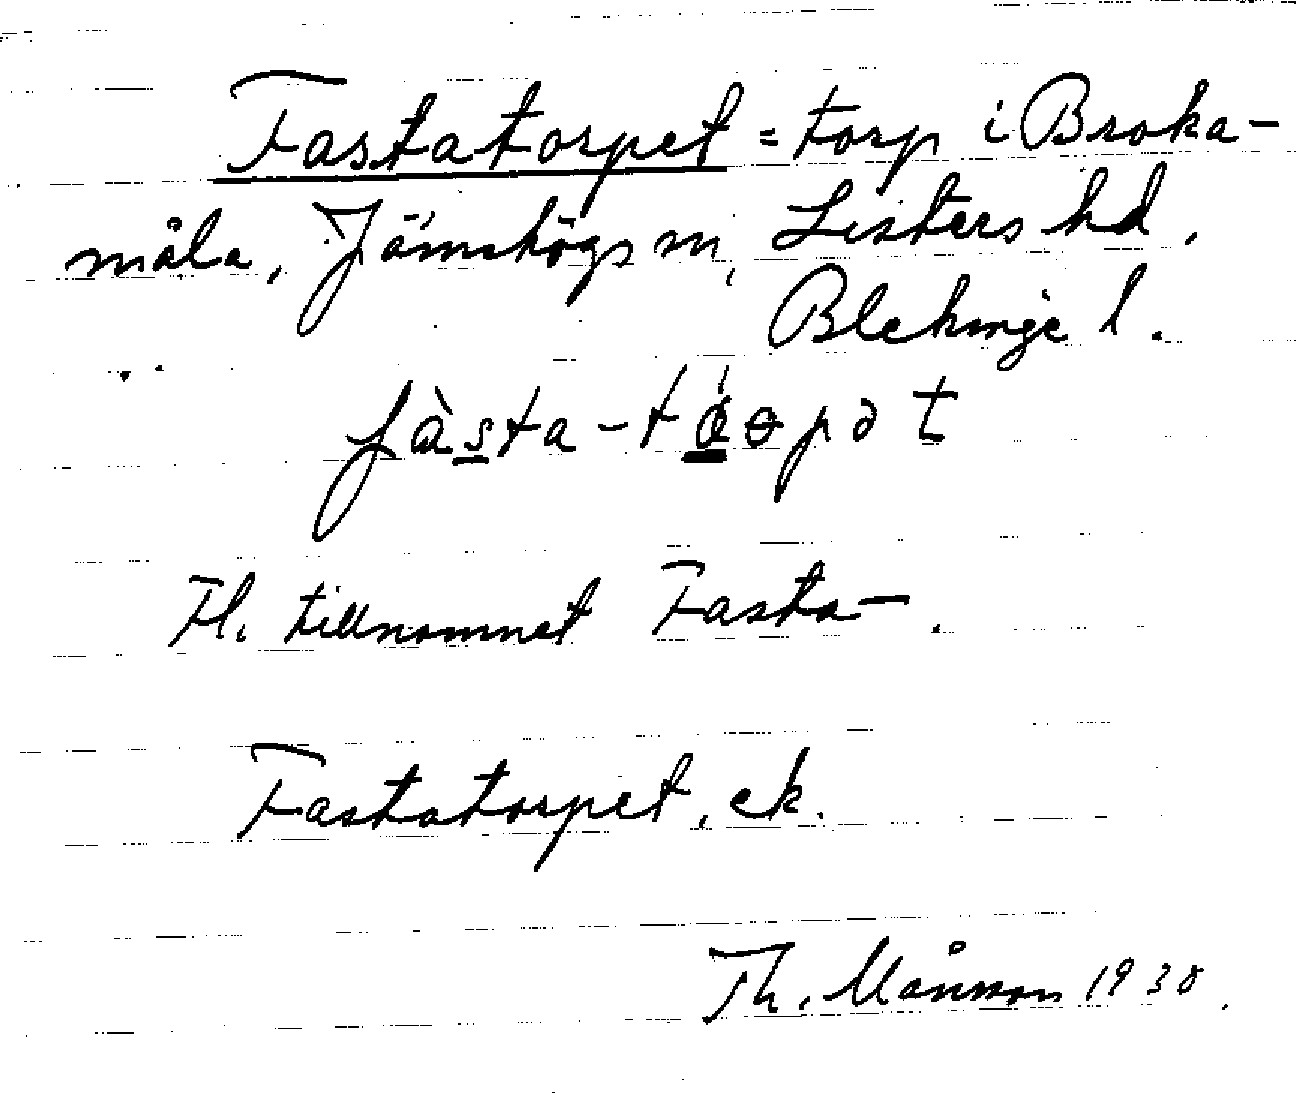 Fastatorpet = torp i Broka-
måla, Jämshögs sn, Listers hd,
Blekinge l.
fàsta-tǿɵpət
Fl. tillnamnet Fasta-.
Fastatorpet, ek.
Th. Månsson 1938.